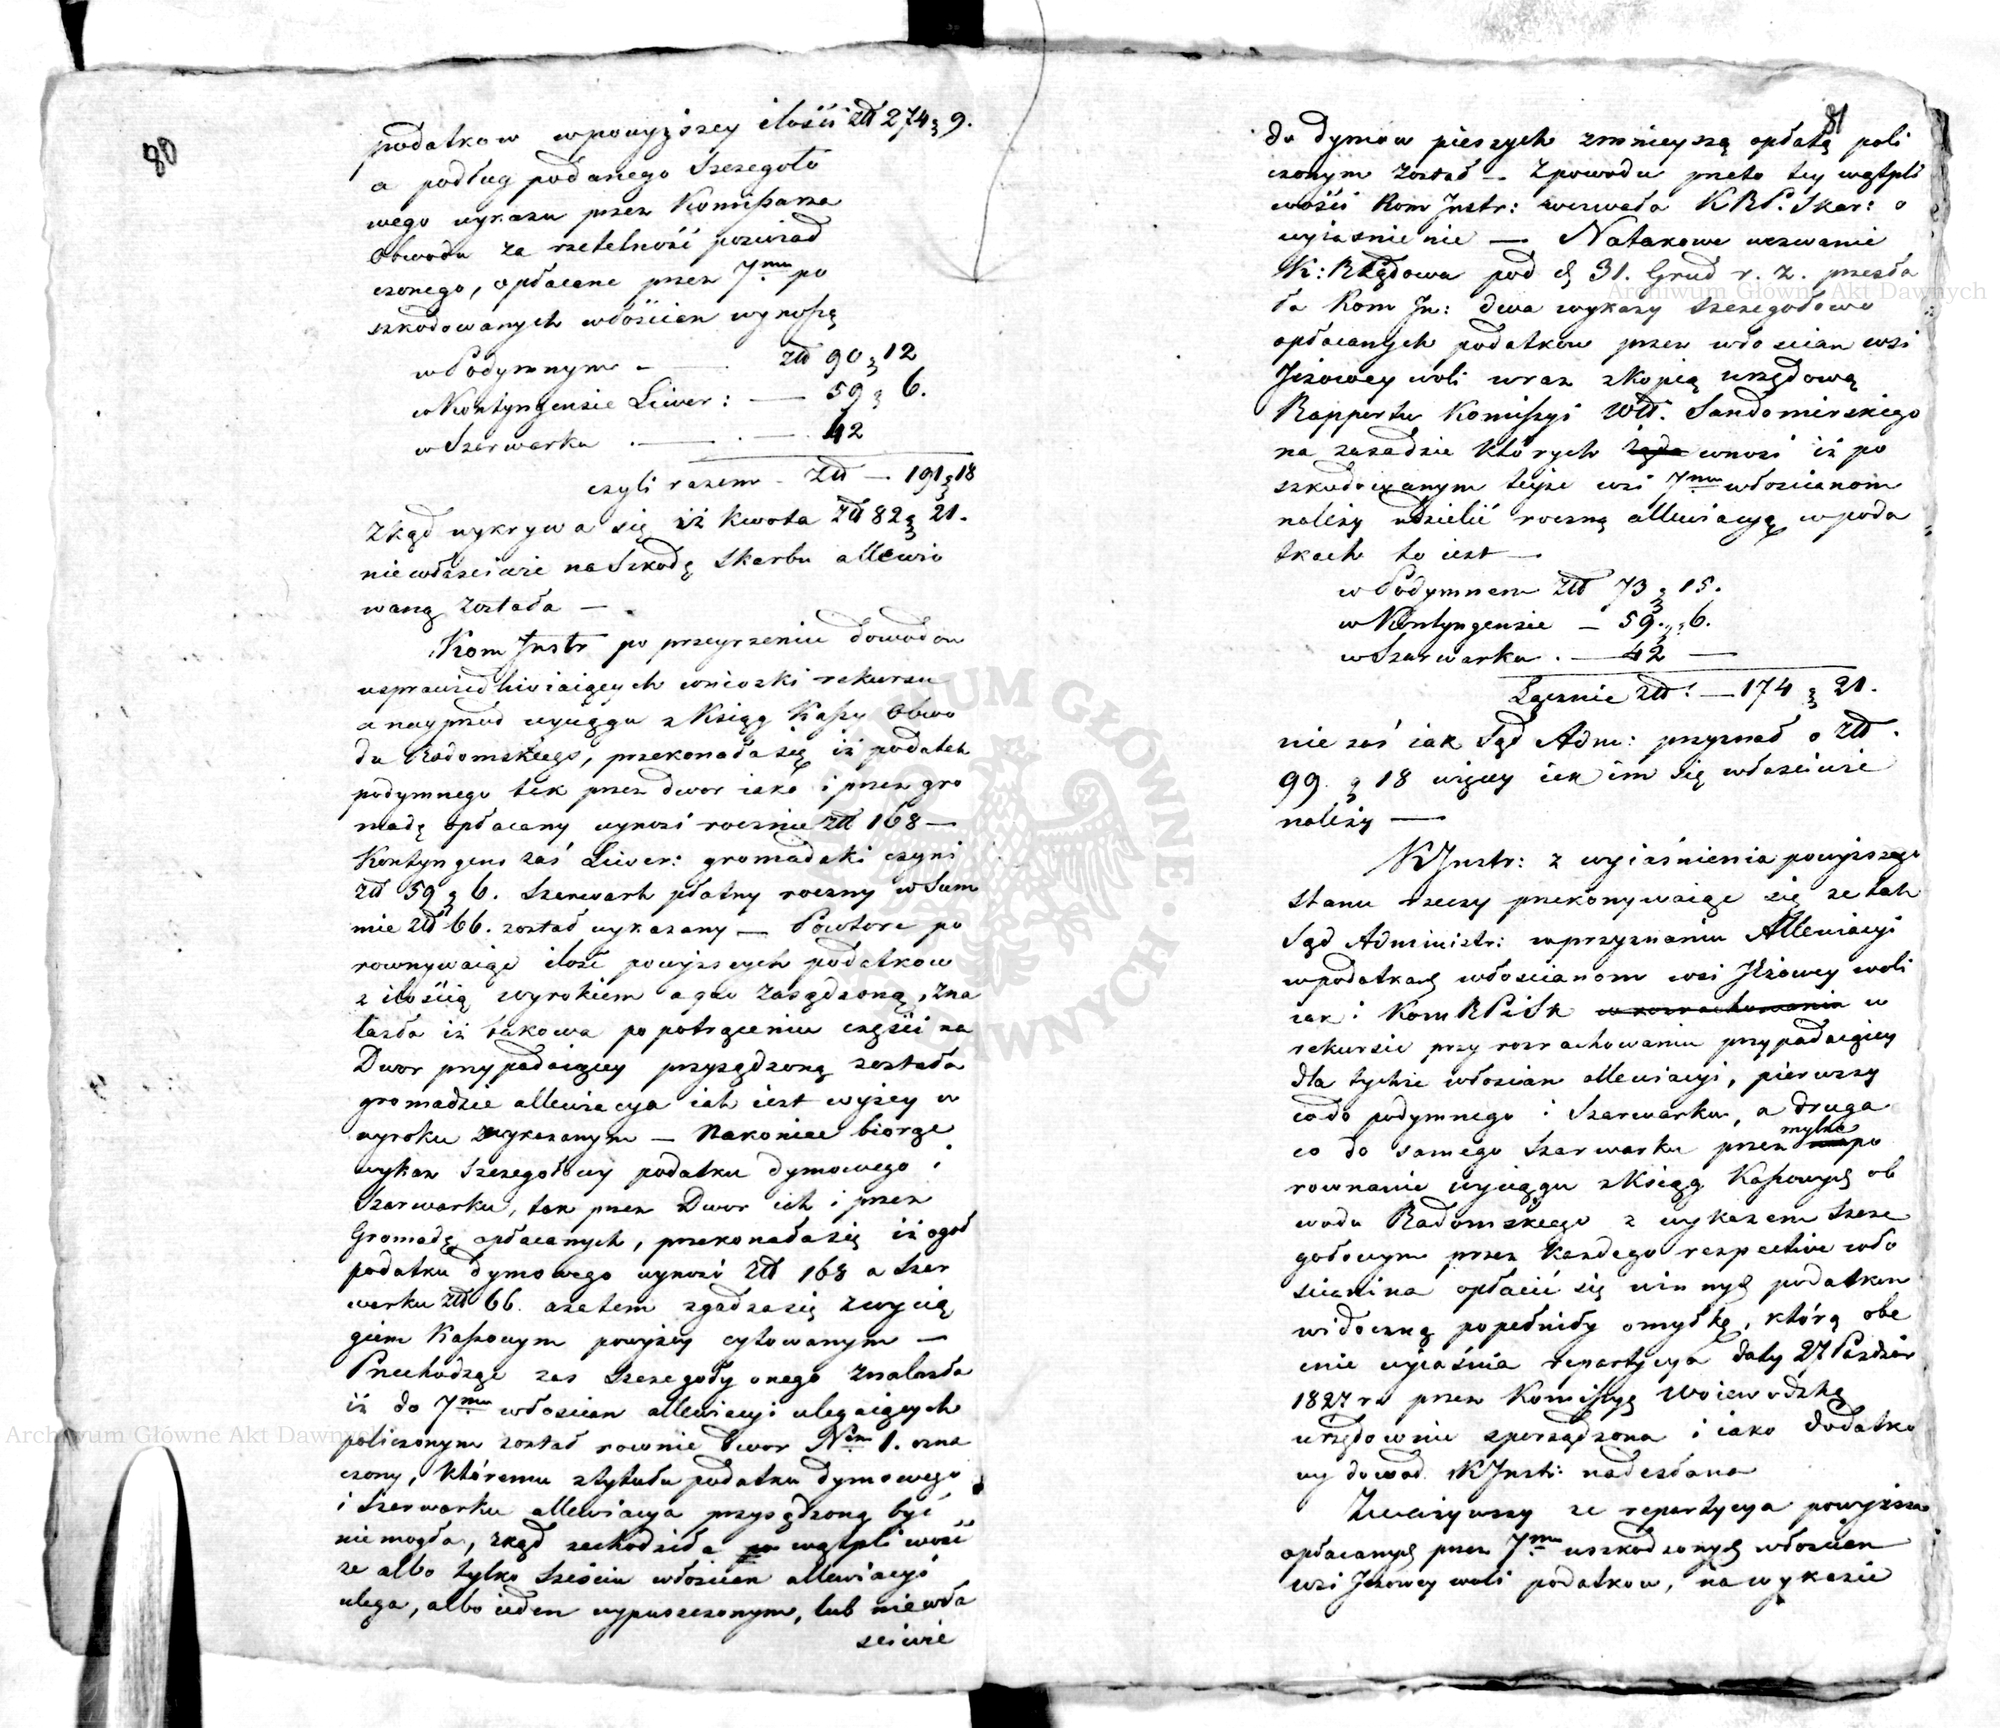 80
podatkow wpowyższey ilości złł 274 g 9.
a podług podanego Szczegoło
wego wykazu przez Kommissarza
Obwodu za rzetelność poswiad
czonego, opłacane przez 7miu po
szkodowanych włoscian wynoszą
w Podymnym — złł 90 g 12
w Kontyngensie Liwer: — 59 g 6.
w Szarwarku — 42
czyli razem — złł — 191 g 18
Zkąd wykrywa się iż Kwota złł 82 g 21.
niewłaściwie na Szkodę Skarbu allewio
waną została —
Kom Instr po przeyrzeniu dowodow
usprawiedliwiaiących wnioski rekursu
a nayprzod wyciągu z Ksiąg Kassy Obwo
du Radomskiego, przekonała się iż podatek
podymnego tak przez dwor iako i przez gro
madę opłacany wynosi rocznie złł 168 —
Kontyngens zaś Liwer: gromadzki czyni
złł 59 g 6. Szarwark płatny roczny w Sum
mie złł 66. został wykazany — Powtore po
rownywaiąc ilość powyższych podatkow
z ilością wyrokiem ago zasądzoną, zna
lazła iż takowa po potrąceniu części na
Dwor przypadaiącey przysądzoną została
gromadzie allewiacya iak iest wyżey w
wyroku wykazanym — Nakoniec biorąc
wykaz Szczegołowy podatku dymowego i
Szarwarku, tak przez Dwor iak i przez
Gromadę opłacanych, przekonała się iż ogoł
podatku dymowego wynosi złł 168 a Szar
warku złł 66. azatem zgadza się z wycią
giem Kassowym powyżey cytowanym —
Przechodząc zas Szczegoły onego znalazła
iż do 7miu włoscian allewiacyi ulegaiących
policzonym został rownie Dwor Nem 1. ozna
czony, któremu z tytułu podatku dymowego
i Szarwarku allewiacya przysądzoną być
niemogła, zkąd zachodziła wątpliwość
ze albo tylko Sześciu włoscian allewiacyi
ulega, albo ieden wypuszczonym, lub niewła
sciwie
81
do dymow pieszych zmnieyszą opłatą poli
czonym został — Z powodu przeto tey wątpli
wości Kom Instr: wezwała KRP. Skar: o
wyiasnienie — Na takowe wezwanie
K: Rządowa pod d 31. Grud r. z. przesła
ła Kom In: dwa wykazy Szczegołowe
opłacanych podatkow przez włoscian wsi
Jeżowey woli wraz z kopią urzędową
Rapportu Komissyi Wd. Sandomirskiego
na zasadzie których żąda wnosi iż po
szkodowanym teyże wsi 7miu włoscianom
należy udzielić roczną allewiacyą w poda
tkach to iest —
w Podymnem złł 73 g 15.
w Kontyngensie — 59. g 6.
w Szarwarku . — 42 —
Łącznie złł: — 174 g 21.
nie zaś iak Sąd Adm: przyznał o złł.
99. g 18 więcey iak im się własciwie
należy —
K Instr: z wyiaśnienia powyższego
Stanu rzeczy przekonywaiąc się ze tak
Sąd Administr: w przyznaniu Allewiacyi
w podatkach włoscianom wsi Jeżowey woli
iak i Kom RPiSk w rozrachowaniu w
rekursie przy rozrachowaniu przypadaiącey
dla tychże włoscian allewiacyi, pierwszy
codo podymnego i Szarwarku, a druga
co do samego Szarwarku przez mylne po
rownanie wyciągu z Ksiąg Kassowych ob
wodu Radomskiego z wykazem Szcze
gołowym przez każdego respective wło
scianina opłacić się winnych podatkow
widoczną popełniły omyłkę, którą obe
cnie wyiaśnia repartycya daty 27 Pazdzier
1827 ro przez Komissyą Woiewodzką
urzędownie sporządzona i iako dodatko
wy dowod K Instr: nadesłana
Zważywszy ze repartycya powyższa
opłacanych przez 7miu uszkodzonych włoscian
wsi Jezowey woli podatkow, na wykazie
Archiwum Główne Akt Dawnych
Archiwum Główne Akt Dawnych
ARCHIWUM GŁÓWNE AKT DAWNYCH